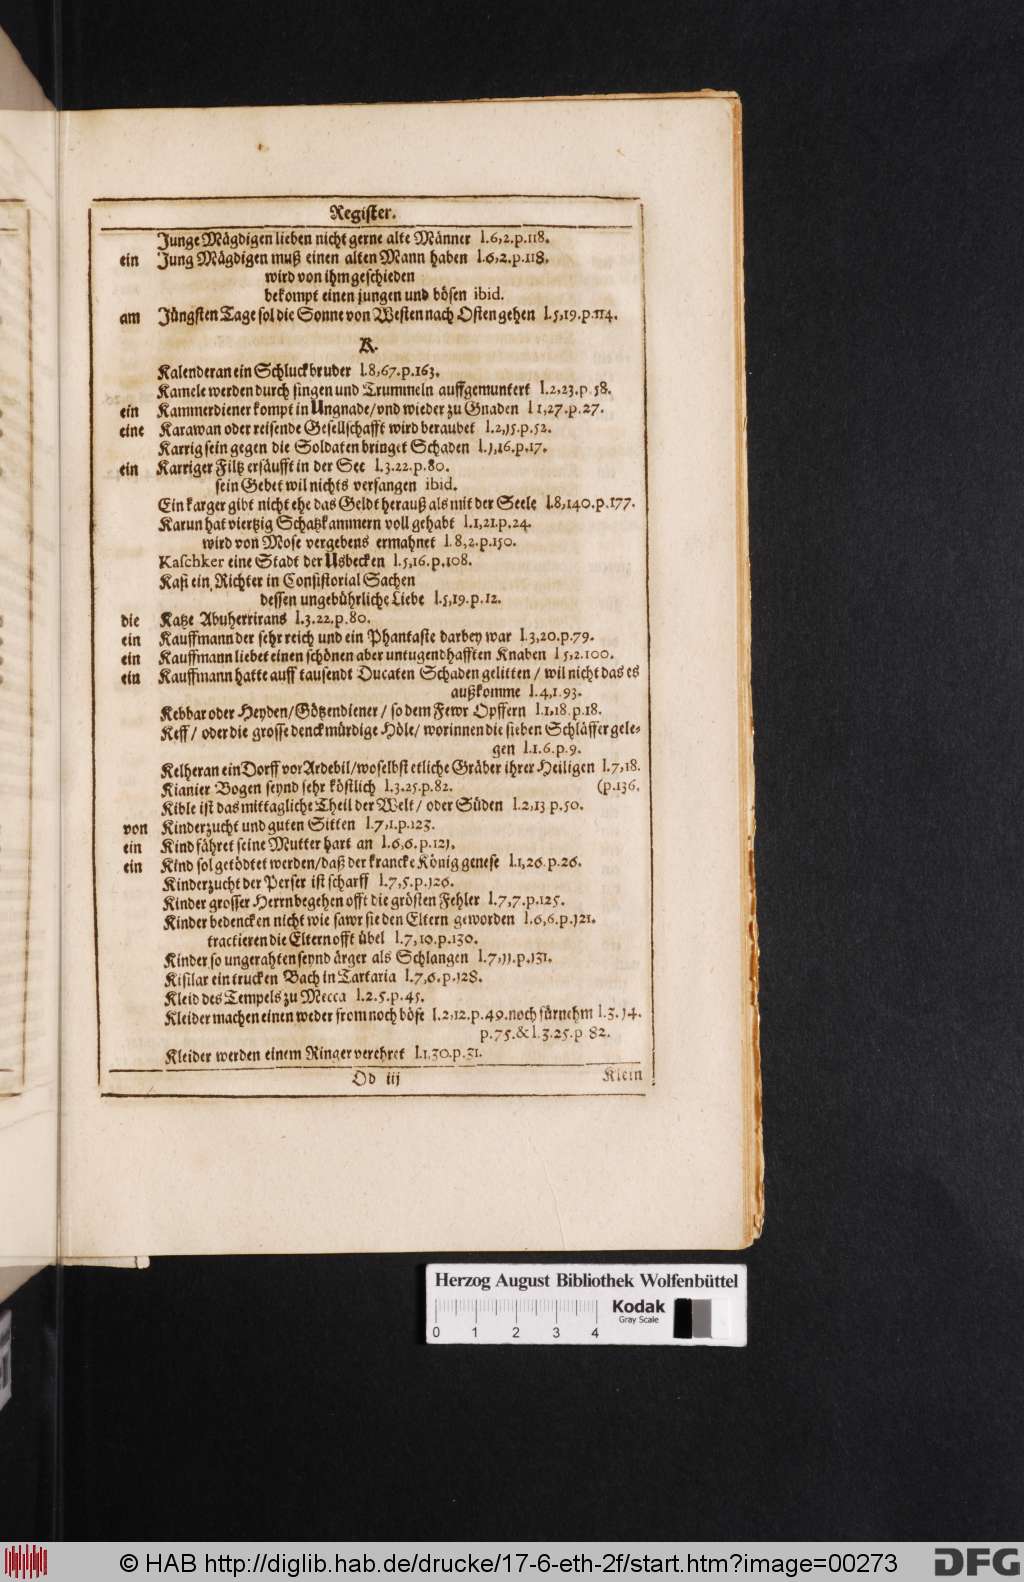 Register.
Junge Mägdigen lieben nicht gerne alte Männer l.6,2.p.118.
ein Jung Mägdigen muß einen alten Mann haben l.6,2.p.118.
wird von ihm geschieden
bekompt einen jungen und bösen ibid.
am Jüngsten Tage sol die Sonne von Westen nach Osten gehen l.5,19.p.114.
K.
Kalenderan ein Schluckbruder l.8,67.p.163.
Kamele werden durch singen und Trummeln auffgemuntert l.2,23.p.58.
ein Kammerdiener kompt in Ungnade/vnd wieder zu Gnaden l 1,27.p.27.
eine Karawan oder reisende Gesellschafft wird beraubet l.2,15.p.52.
Karrig sein gegen die Soldaten bringet Schaden l.1,16.p.17.
ein Karriger Filtz ersäufft in der See l.3.22.p.80.
sein Gebet wil nichts verfangen ibid.
Ein karger gibt nicht ehe das Geldt herauß als mit der Seele l.8,140.p.177.
Karun hat viertzig Schatzkammern voll gehabt l.1,21.p.24.
wird von Mose vergebens ermahnet l.8,2.p.150.
Kaschker eine Stadt der Usbecken l.5,16.p.108.
Kasi ein Richter in Consistorial Sachen
dessen ungebührliche Liebe l.5,19.p.12.
die Katze Abuherrirans l.3.22.p.80.
ein Kauffmann der sehr reich und ein Phantaste darbey war l.3,20.p.79.
ein Kauffmann liebet einen schönen aber untugendhafften Knaben l 5,2.100.
ein Kauffmann hatte auff tausendt Ducaten Schaden gelitten / wil nicht das es
außkomme l.4,1.93.
Kebbar oder Heyden/Götzendiener / so dem Fewr Opffern l.1,18.p.18.
Keff / oder die grosse denckwürdige Höle/ worinnen die sieben Schläffer gele-
gen l.1.6.p.9.
Kelheran ein Dorff vor Ardebil/woselbst etliche Gräber ihrer Heiligen l.7,18.
Kianier Bogen seynd sehr köstlich l.3.25.p.82. (p.136.
Kible ist das mittagliche Theil der Welt / oder Süden l.2,13 p.50.
von Kinderzucht und guten Sitten l.7,1.p.123.
ein Kind fähret seine Mutter hart an l.6,6.p.121.
ein Kind sol getödtet werden/daß der krancke König genese l.1,26.p.26.
Kinderzucht der Perser ist scharff l.7,5.p.126.
Kinder grosser Herrn begehen offt die grösten Fehler l.7,7.p.125.
Kinder bedencken nicht wie sawr sie den Eltern geworden l.6,6.p.121.
tractieren die Eltern offt übel l.7,10.p.130.
Kinder so ungerahten seynd ärger als Schlangen l.7,11.p.131.
Kisilar ein trucken Bach in Tartaria l.7,6.p.128.
Kleid des Tempels zu Mecca l.2.5.p.45.
Kleider machen einen weder from noch böse l.2,12.p.49.noch fürnehm l.3.14.
p.75.&l.3.25.p 82.
Kleider werden einem Ringer verehret l.1,30.p.31.
Dd iij Klein
Herzog August Bibliothek Wolfenbüttel
0 1 2 3 4
Kodak
Gray Scale
© HAB http://diglib.hab.de/drucke/17-6-eth-2f/start.htm?image=00273
DFG
digilib